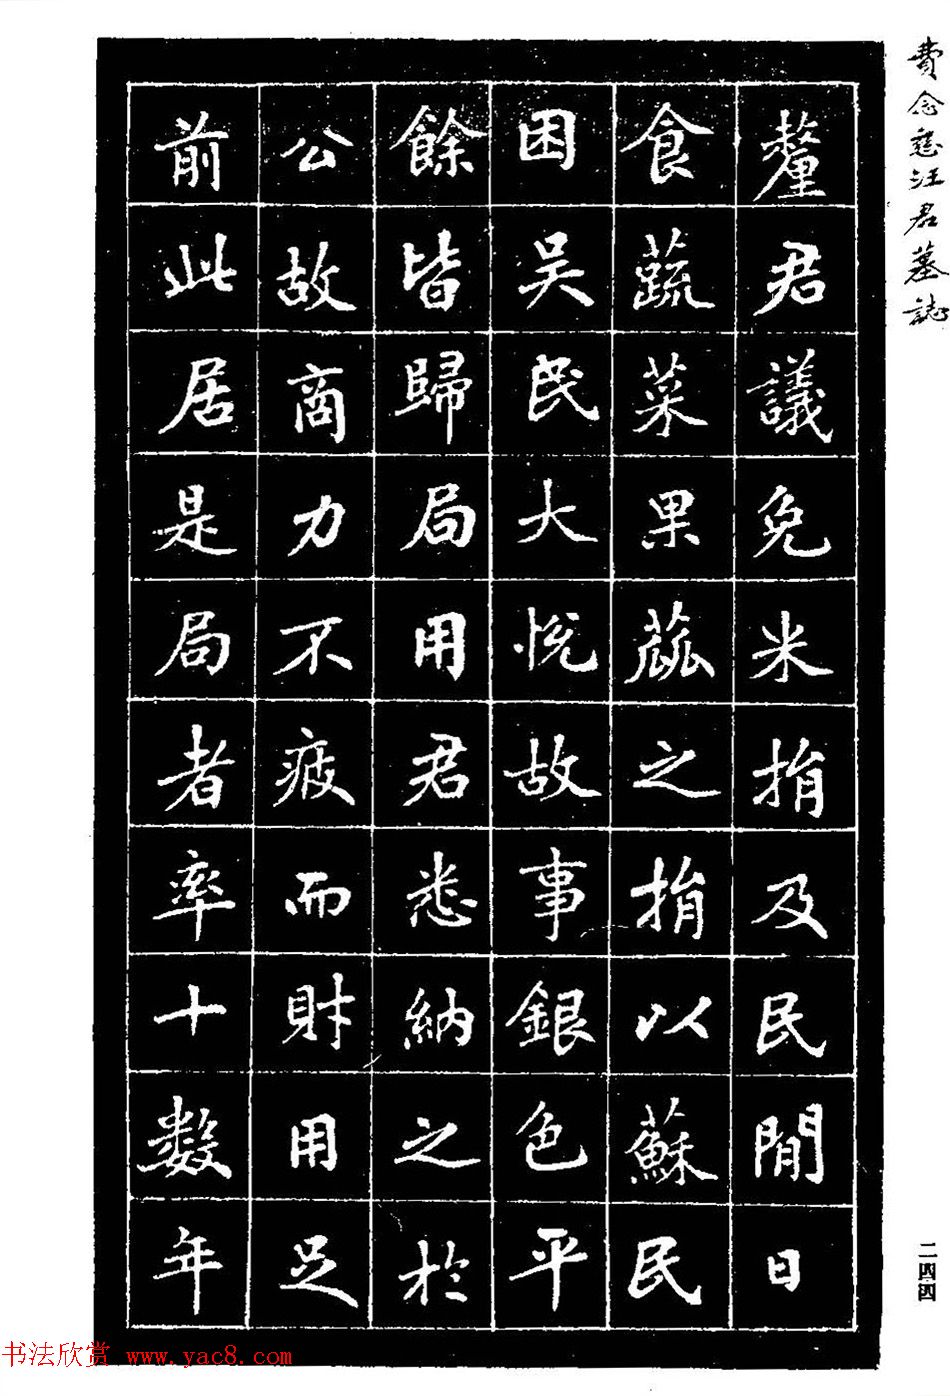 費念慈汪君墓誌
釐君議免米捐及民閒日
食蔬菜果蓏之捐以蘇民
困吴民大悦故事銀色平
餘皆歸局用君悉納之於
公故商力不疲而財用足
前此居是局者率十數年
二四四
书法欣赏 www.yac8.com